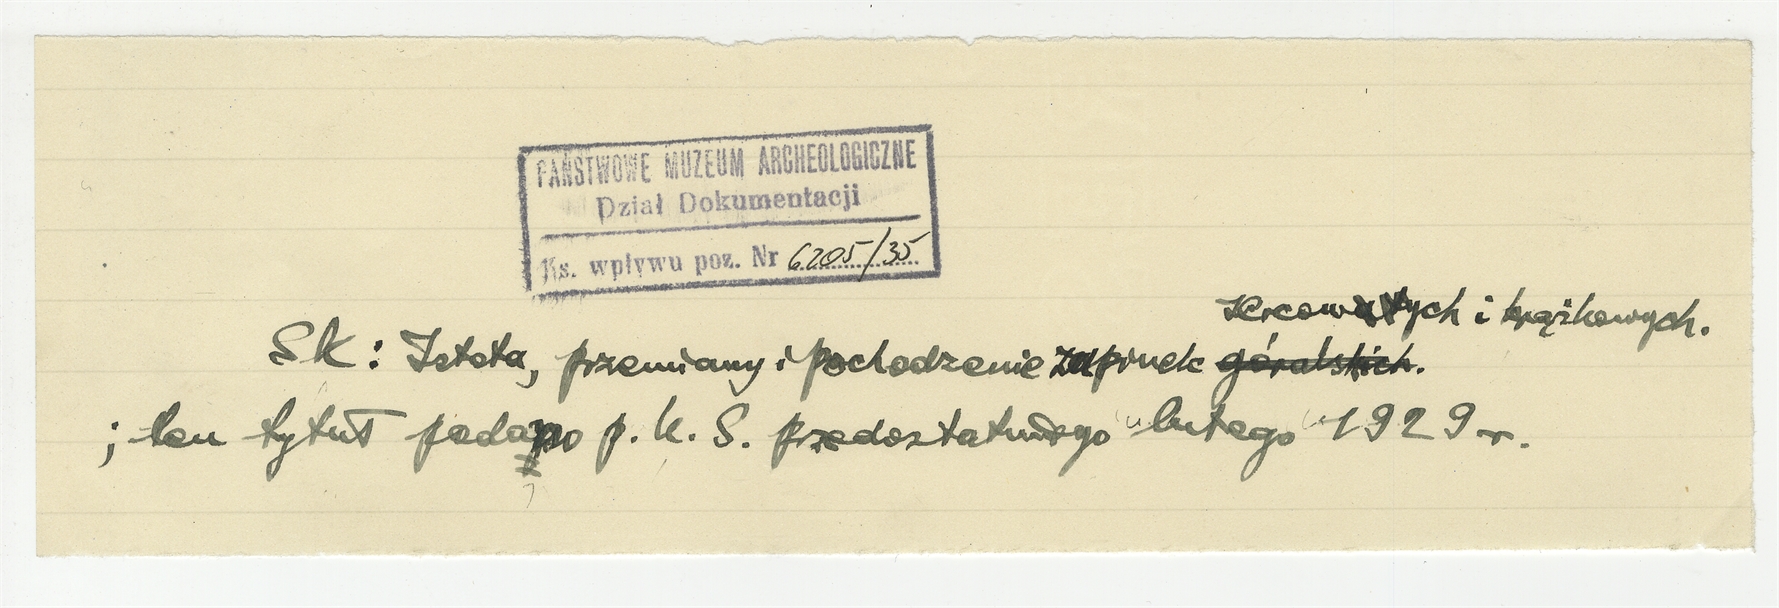 PAŃSTWOWE MUZEUM ARCHEOLOGICZNE
Dział Dokumentacji
Ks. wpływu poz. Nr 6205/35
i krążkowych.
SK: Istota, przemiany i pochodzenie zapinek góralskich.
; ten tytuł podano p. K. S. przedostatniego "lutego" 1929 r.